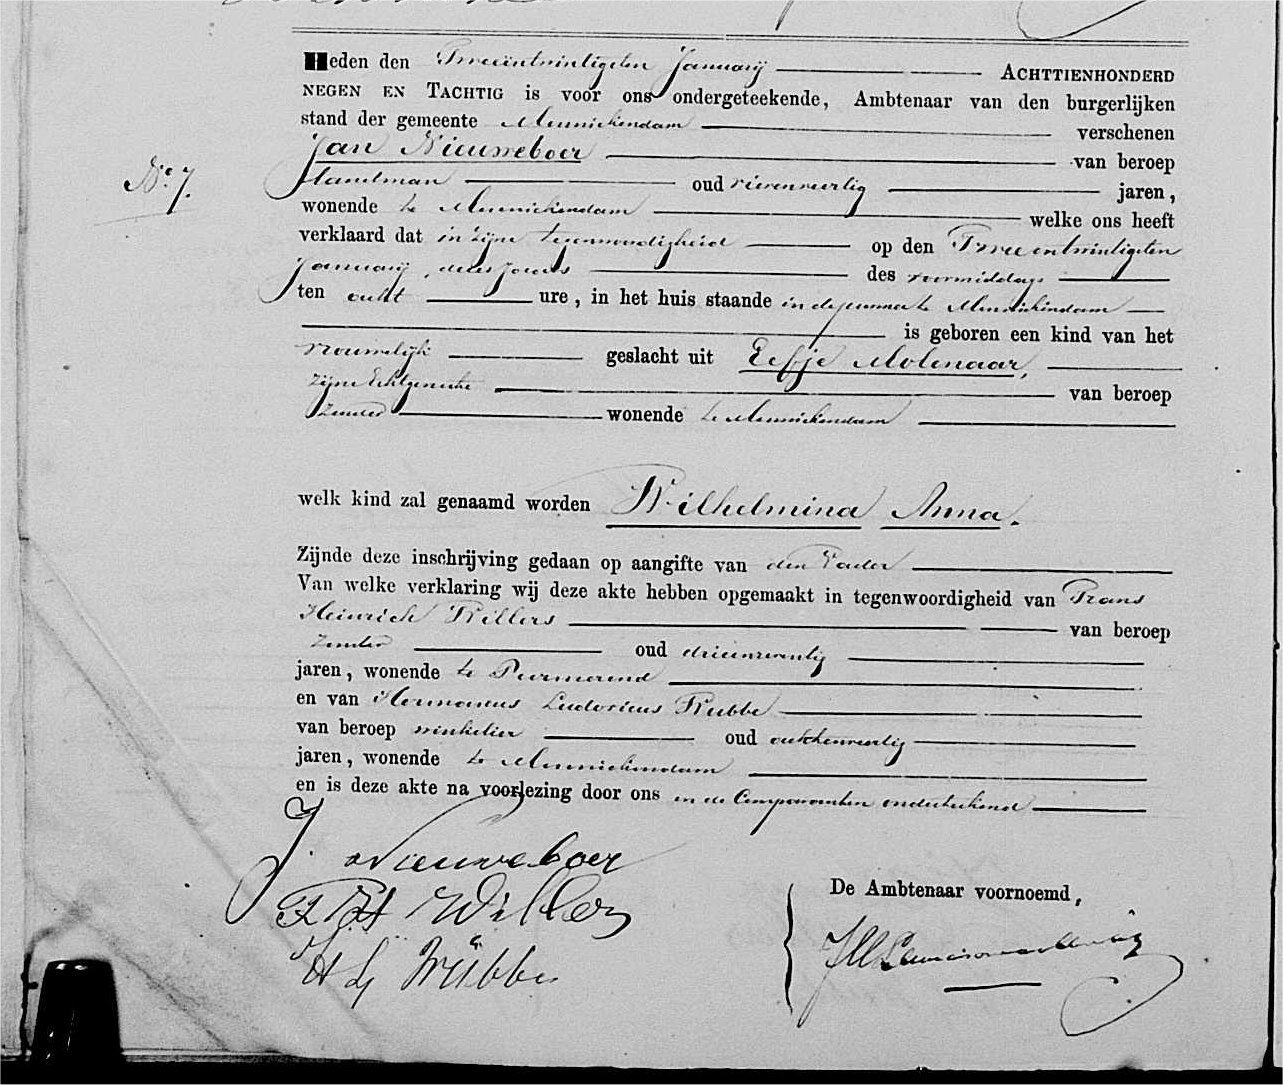 Heden den Tweeëntwintigsten Januarij ACHTTIENHONDERD
NEGEN EN TACHTIG is voor ons ondergeteekende, Ambtenaar van den burgerlijken
stand der gemeente Monnickendam verschenen
Jan Nieuweboer van beroep
No. 7.
Landman oud vierenveertig jaren,
wonende te Monnickendam welke ons heeft
verklaard dat in zijne tegenwoordigheid op den Tweeentwintigsten
Januarij, dezes Jaars des voormiddags
ten acht ure, in het huis staande te Monnickendam
is geboren een kind van het
vrouwelijk geslacht uit Eefje Molenaar,
zijne Echtgenoote van beroep
zonder wonende te Monnickendam
welk kind zal genaamd worden Wilhelmina Anna.
Zijnde deze inschrijving gedaan op aangifte van den Vader
Van welke verklaring wij deze akte hebben opgemaakt in tegenwoordigheid van Frans
Heinrich Willers van beroep
zonder oud drieënzeventig
jaren, wonende te Purmerend
en van Hermanus Ludovicus Wubbe
van beroep winkelier oud achtenveertig
jaren, wonende te Monnickendam
en is deze akte na voorlezing door ons en de Comparanten onderteekend
J. Nieuweboer
F H Willers
De Ambtenaar voornoemd,
H L Wübbe